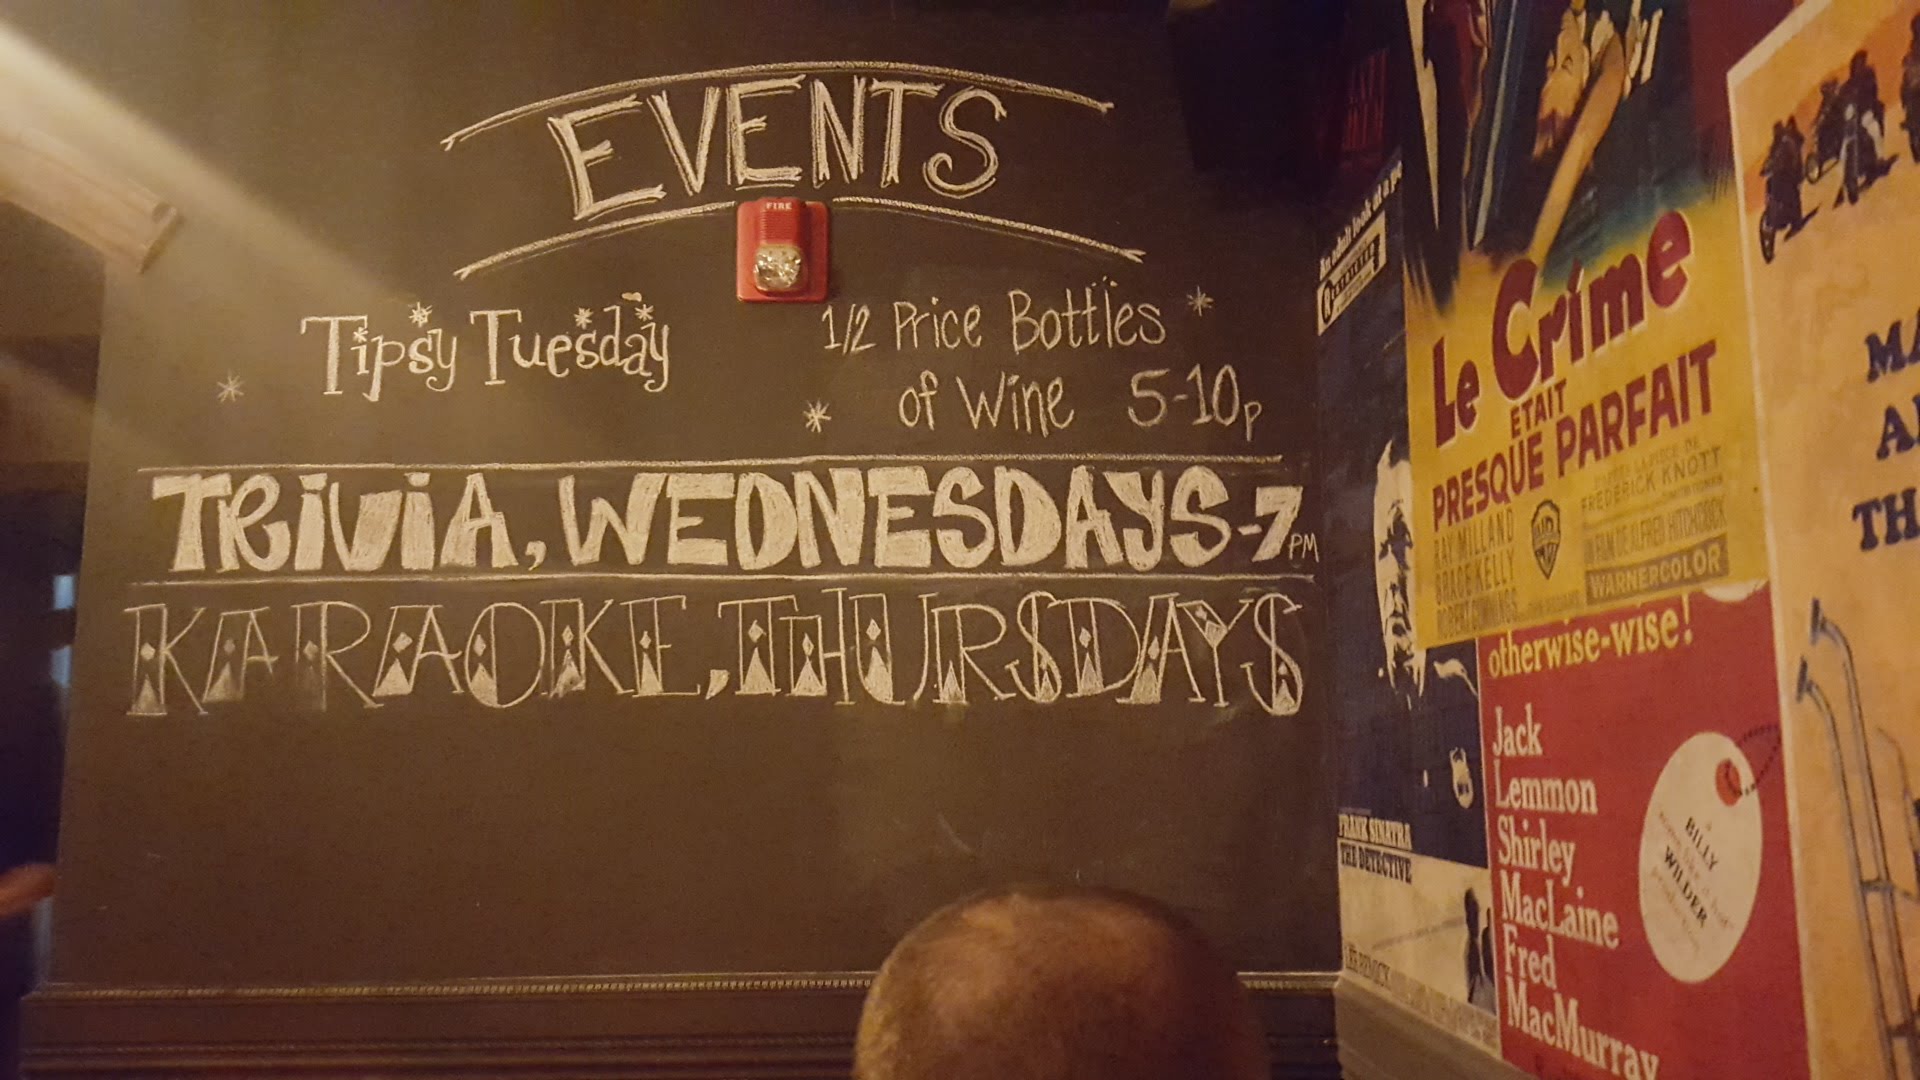 EVENTS
FIRE
Tipsy Tuesday
1/2 Price Bottles
of Wine 5-10p
TRIVIA, WEDNESDAYS-7PM
KARAOKE, THURSDAYS
An adult look at a
FRANK SINATRA
THE DETECTIVE
LEE REMICK
Le Crime
ETAIT
PRESQUE PARFAIT
FREDERICK KNOTT
RAY MILLAND
GRACE KELLY
ROBERT CUMMINGS
UN FILM DE ALFRED HITCHCOCK
WB
WARNERCOLOR
otherwise-wise!
Jack
Lemmon
Shirley
MacLaine
Fred
MacMurray
BILLY
WILDER
MA
A
TH